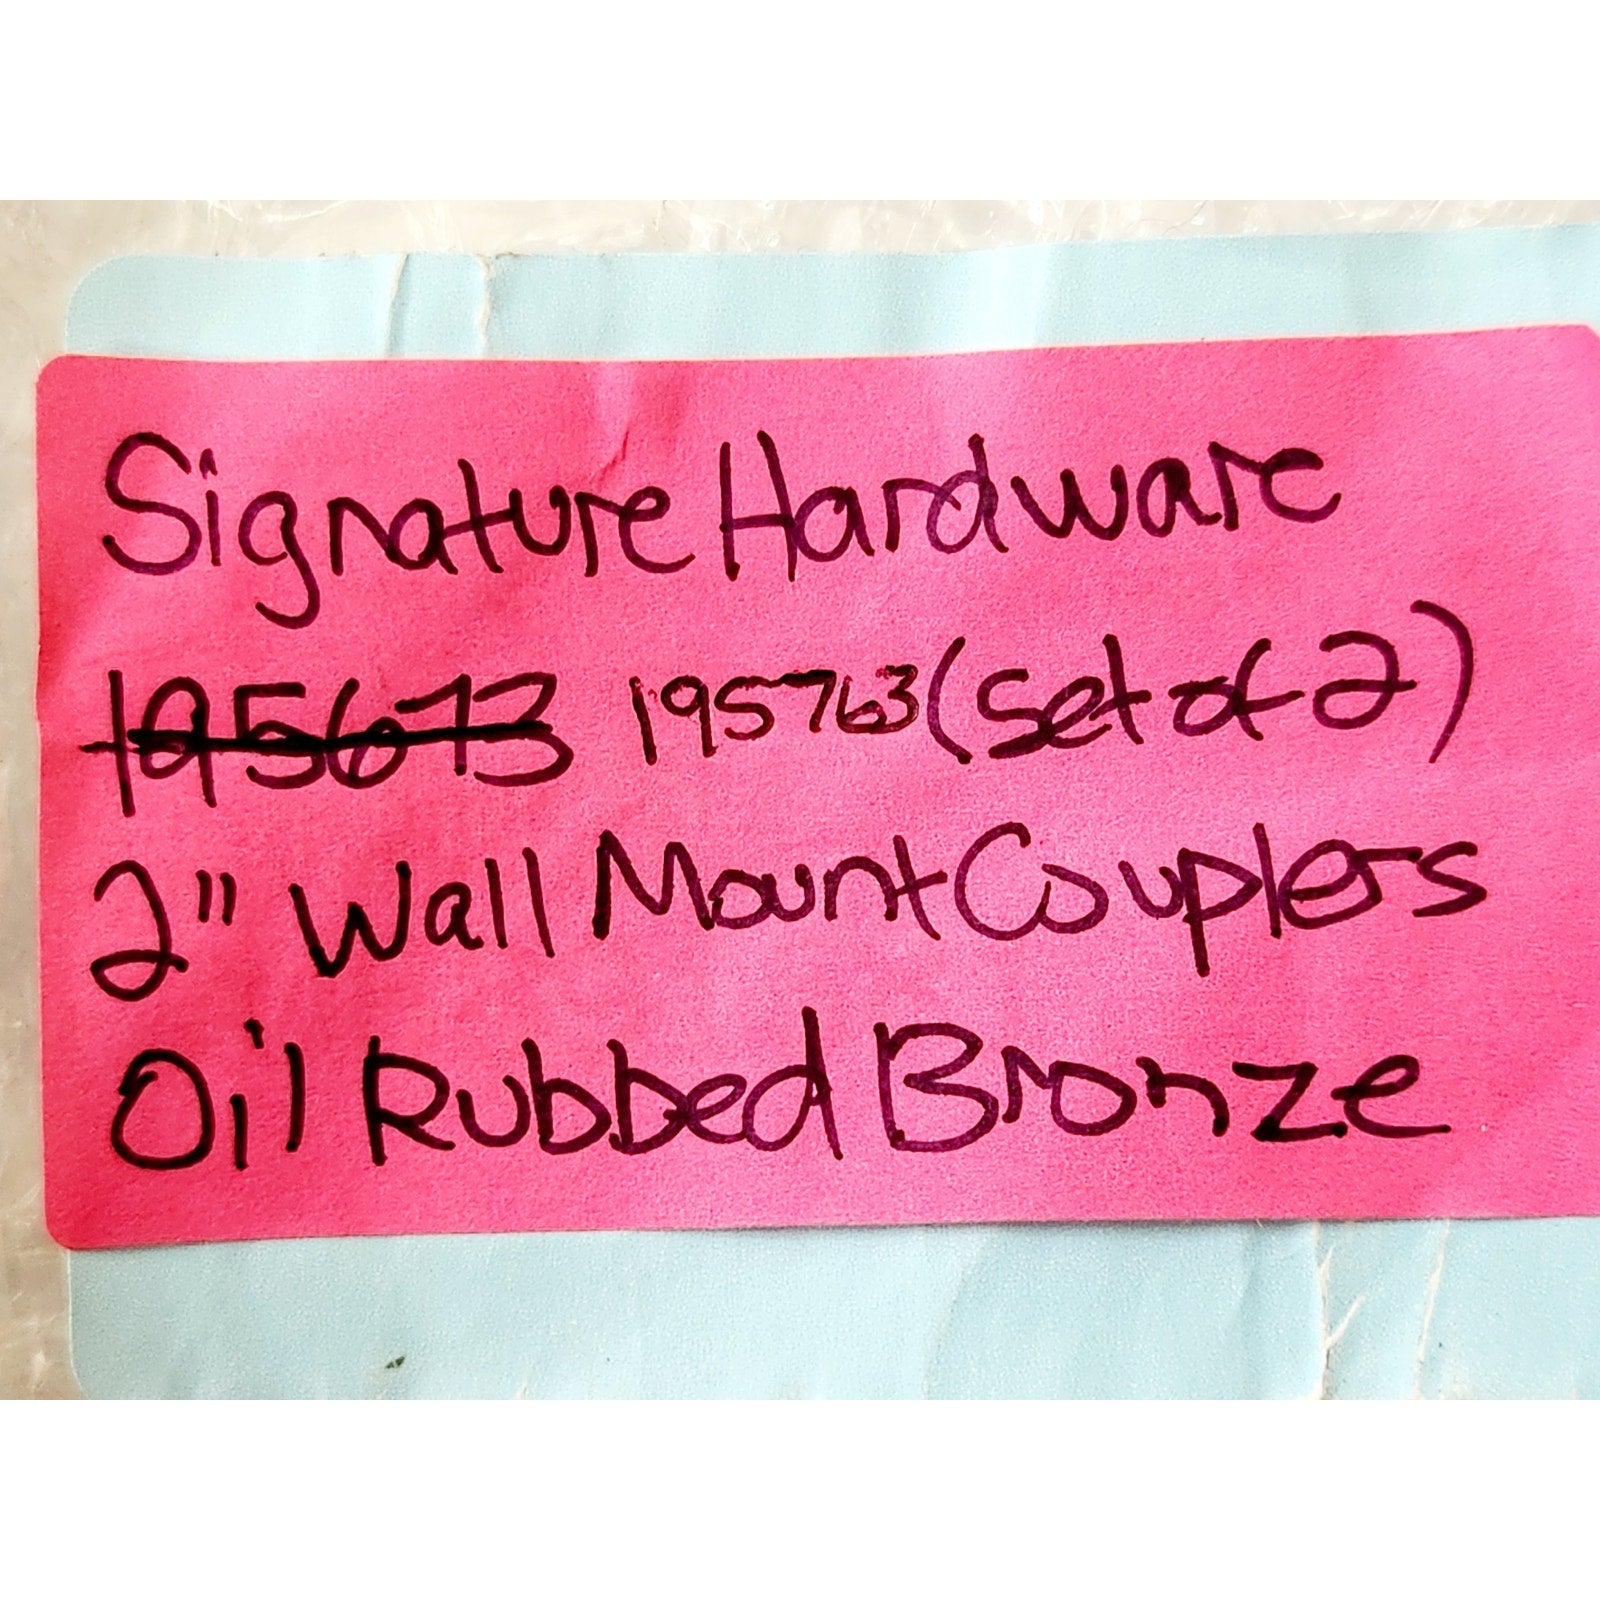 Signature Hardware
195673 195763 (set of 2)
2" Wall Mount Couplers
Oil Rubbed Bronze